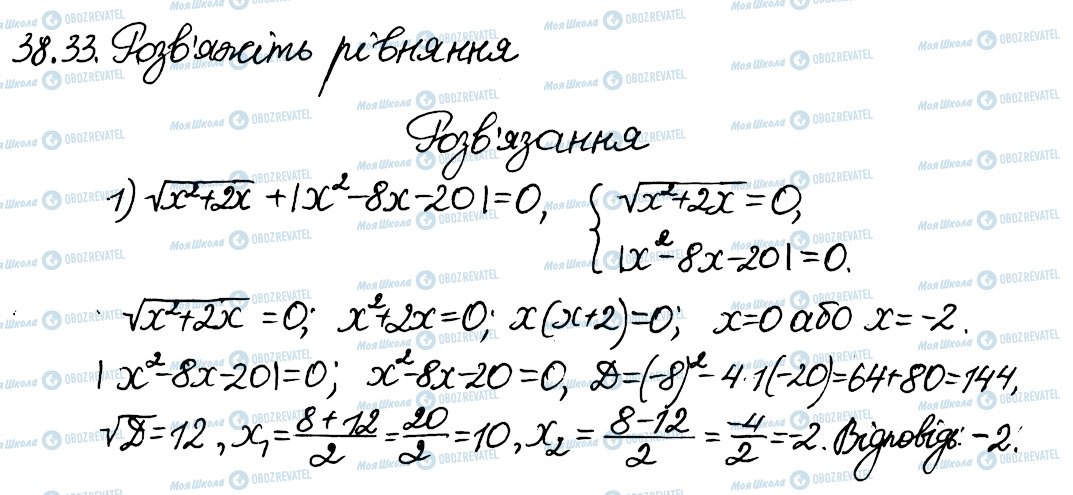 38.33. Розв'яжіть рівняння
Розв'язання
1) √x²+2x + |x²-8x-20|=0, { √x²+2x = 0,
|x²-8x-20|=0.
√x²+2x = 0; x²+2x=0; x(x+2)=0; x=0 або x=-2.
|x²-8x-20|=0; x²-8x-20=0, D=(-8)²-4·1(-20)=64+80=144,
√D=12, x₁=8+12/2=20/2=10, x₂=8-12/2=-4/2=-2. Відповідь: -2.